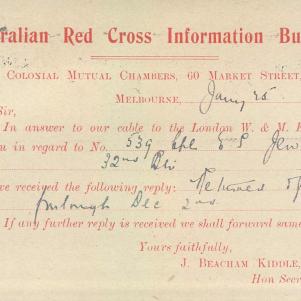 ralian Red Cross Information Bu
COLONIAL MUTUAL CHAMBERS, 60 MARKET STREET,
MELBOURNE, Jany 25
Sir,
In answer to our cable to the London W. & M. 
n in regard to No. 539
32nd Btn
ve received the following reply: Returned
furlough Dec 2nd
If any further reply is received we shall forward same
Yours faithfully,
J. BEACHAM KIDDLE,
Hon Secr